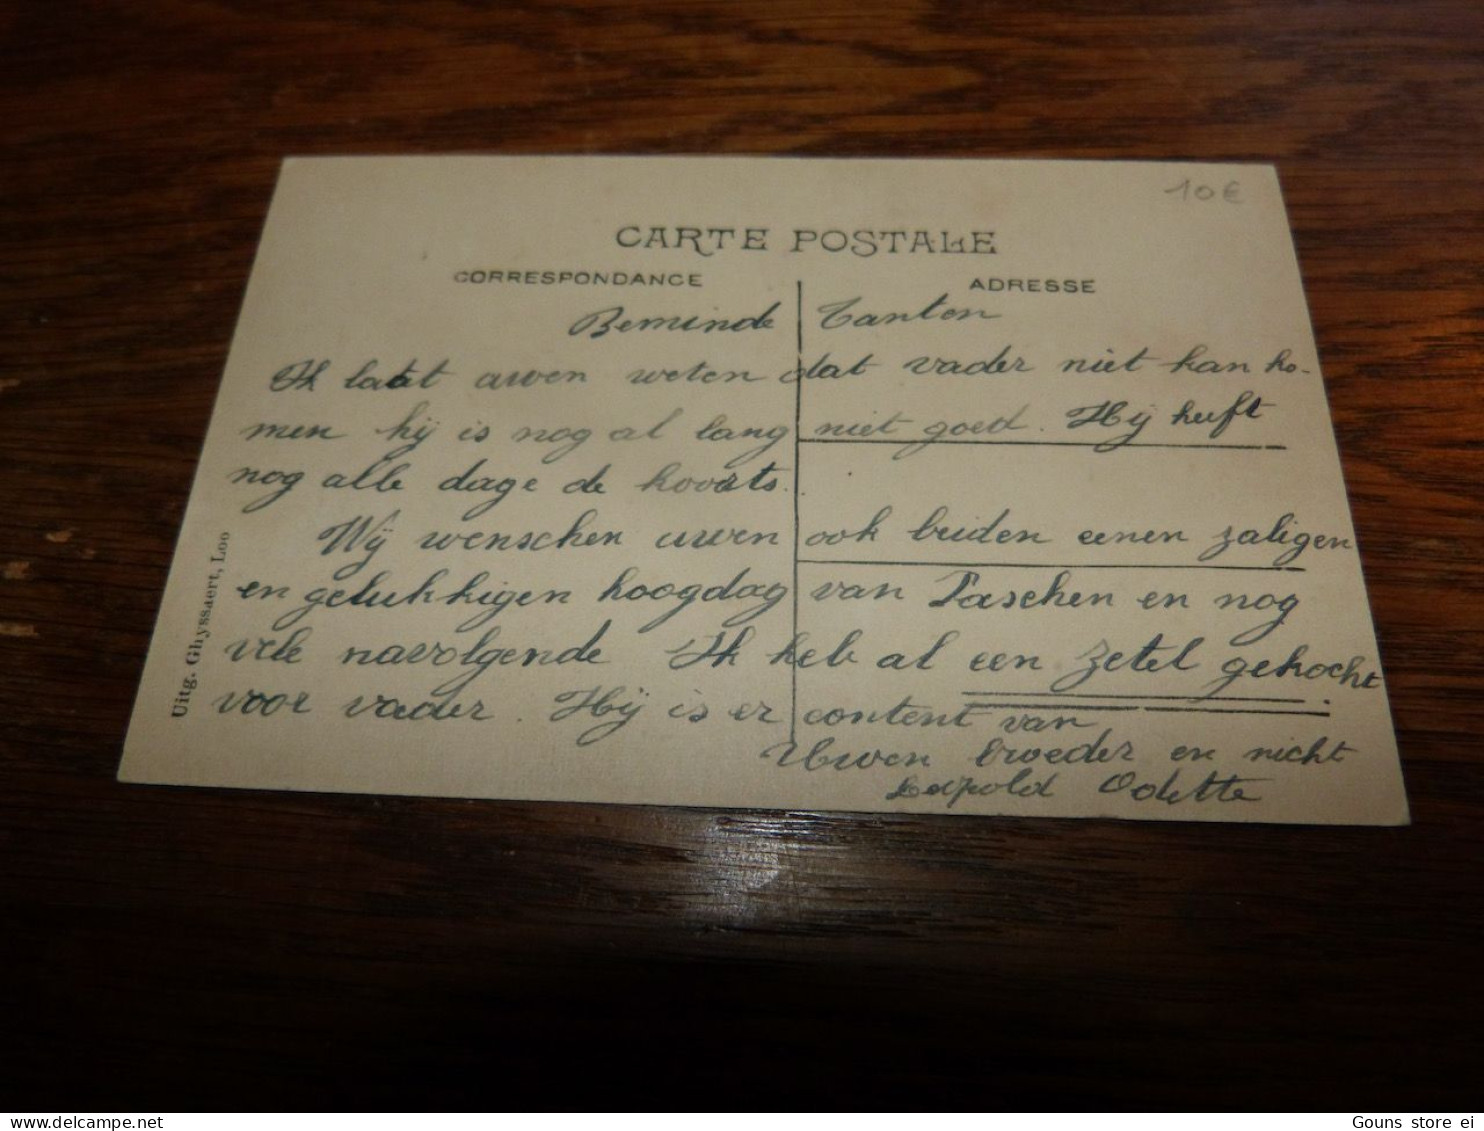 10€
CARTE POSTALE
CORRESPONDANCE ADRESSE
Beminde Tanten
Ik laat uwen weten dat vader niet kan ko-
men hij is nog al lang niet goed. Hij heeft
nog alle dage de koorts.
Wij wenschen uwen ook beiden eenen zaligen
en gelukkigen hoogdag van Paschen en nog
vele navolgende Ik heb al een zetel gekocht
voor vader. Hij is er content van
Uwen broeder en nicht
Leopold Odette
Uitg. Ghyssaert, Loo
Gouns store ei